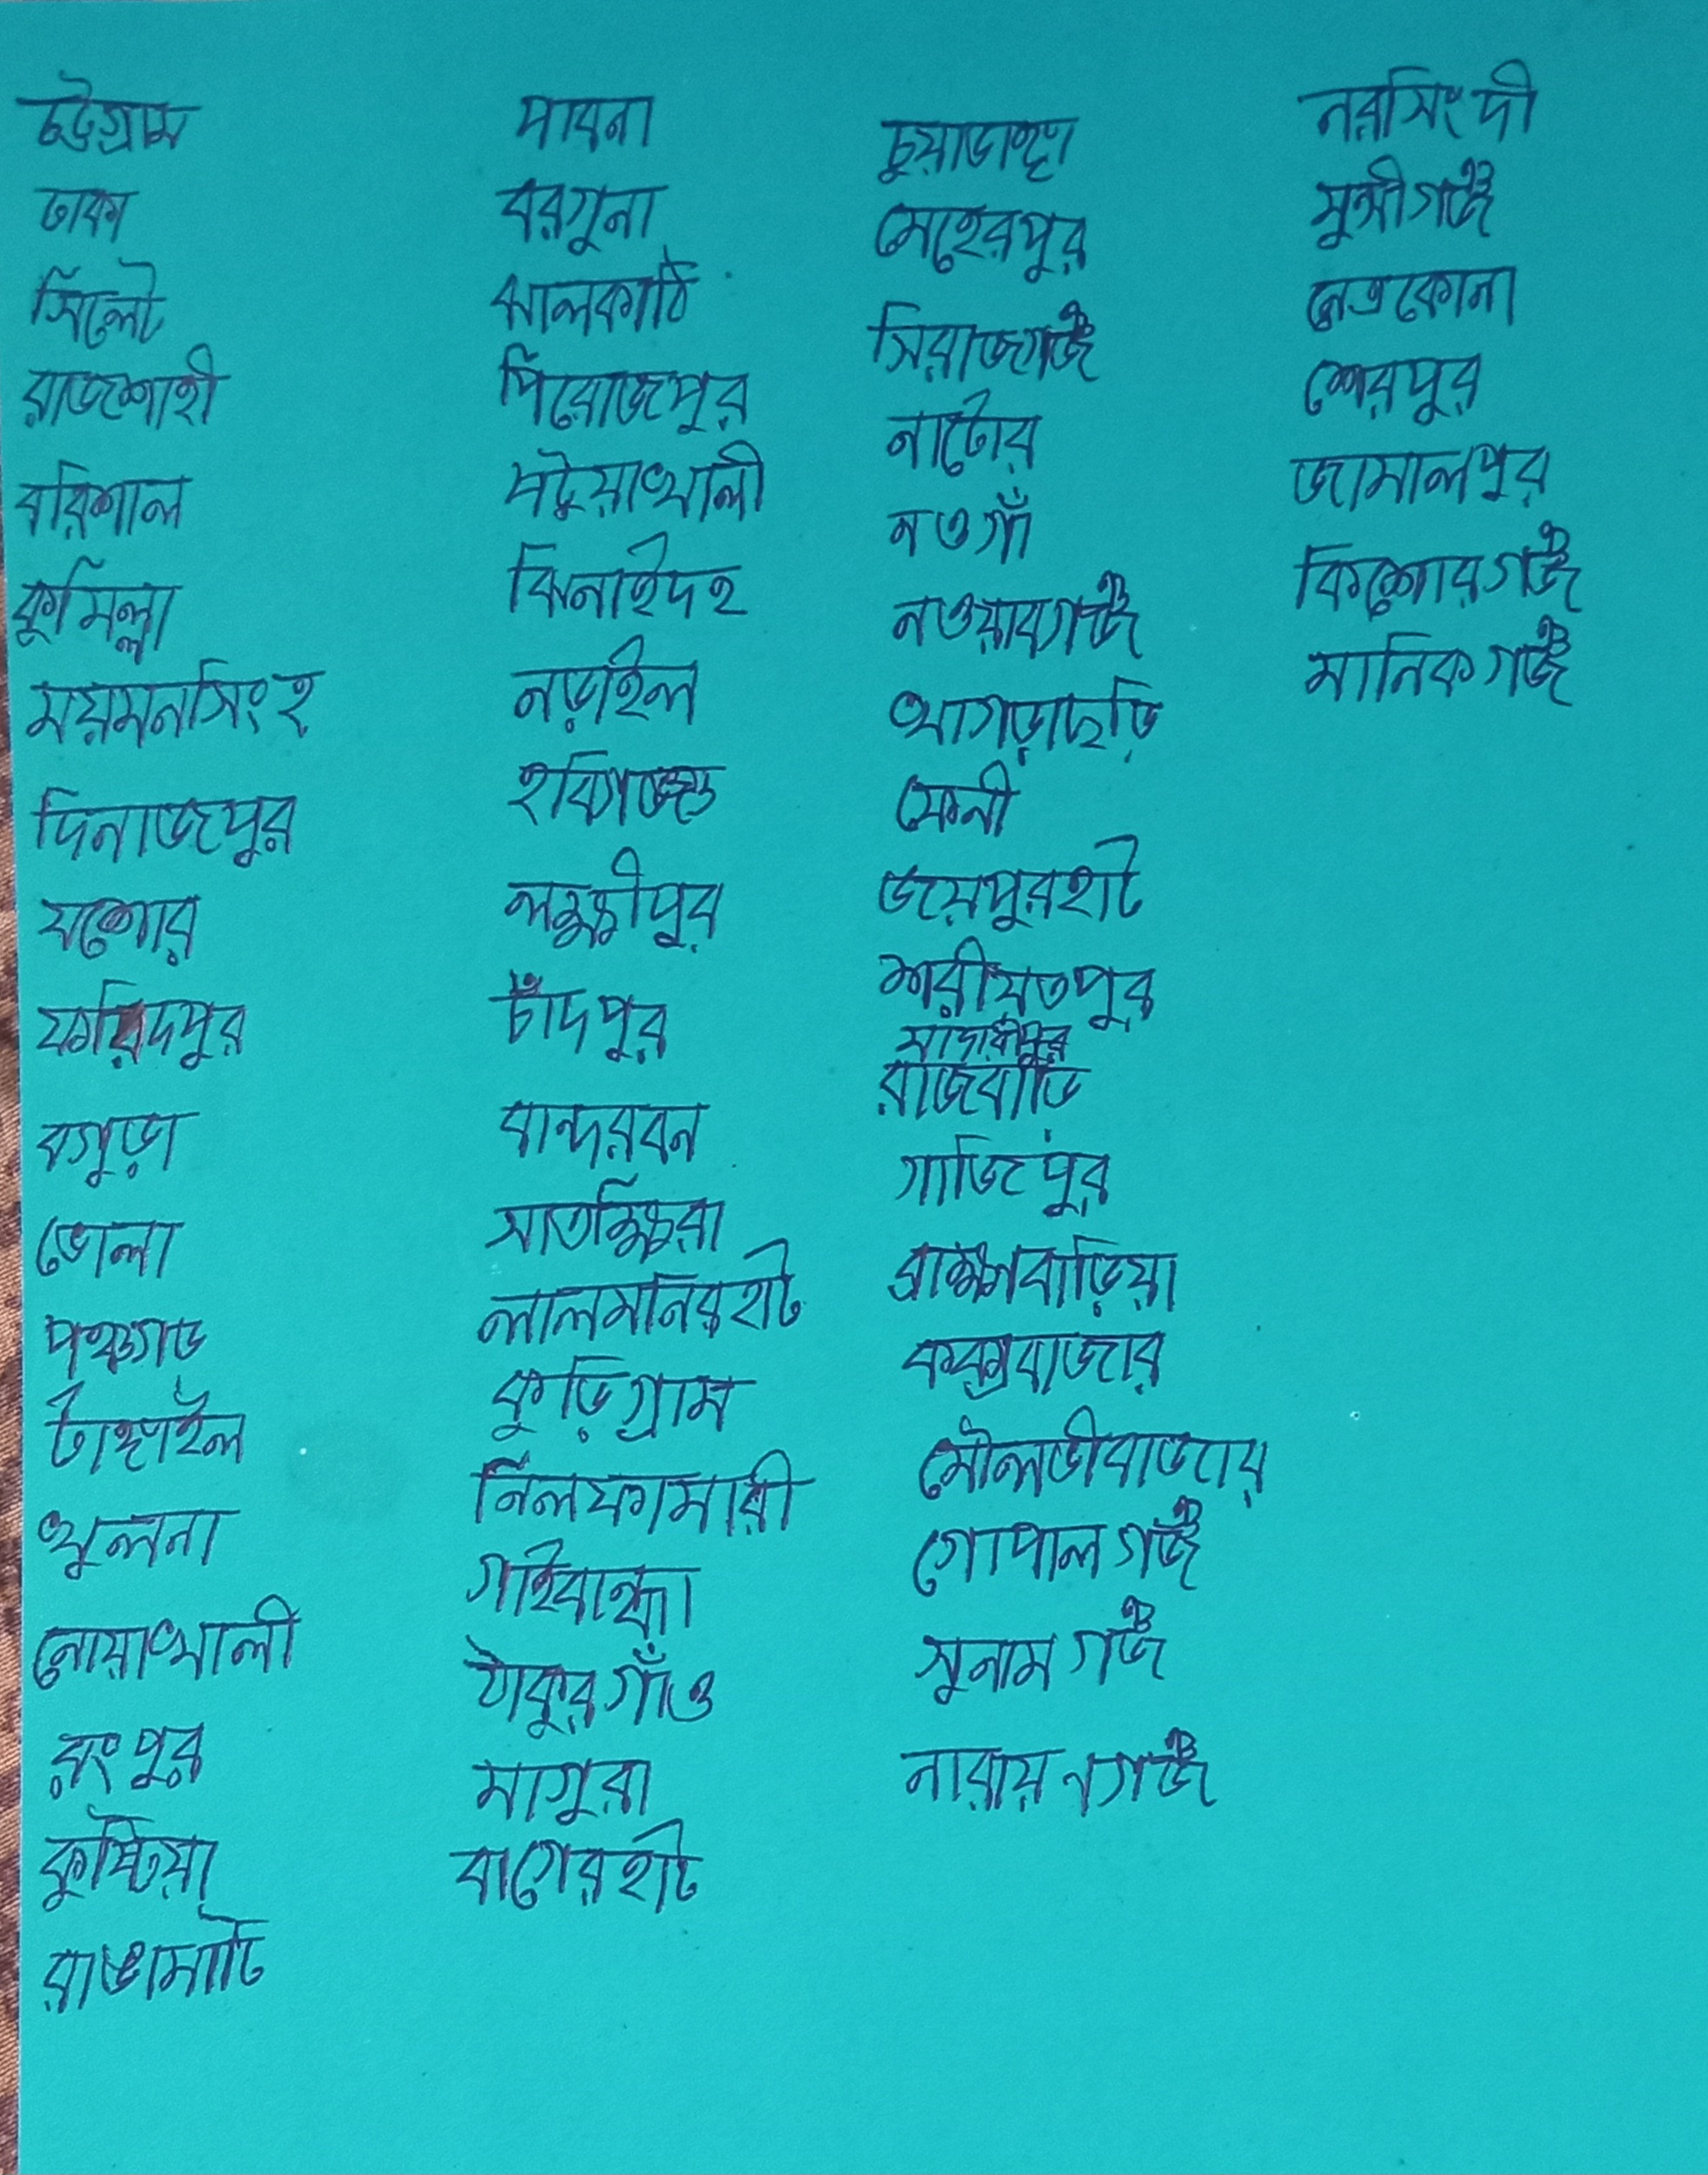 চট্টগ্রাম
ঢাকা
সিলেট
রাজশাহী
বরিশাল
কুমিল্লা
ময়মনসিংহ
দিনাজপুর
যশোর
ফরিদপুর
বগুড়া
ভোলা
পঞ্চগড়
টাঙ্গাইল
খুলনা
নোয়াখালী
রংপুর
কুষ্টিয়া
রাঙামাটি
পাবনা
বরগুনা
ঝালকাঠি
পিরোজপুর
পটুয়াখালী
ঝিনাইদহ
নড়াইল
হবিগঞ্জ
লক্ষ্মীপুর
চাঁদপুর
বান্দরবন
সাতক্ষিরা
লালমনিরহাট
কুড়িগ্রাম
নিলফামারী
গাইবান্ধা
ঠাকুরগাঁও
মাগুরা
বাগেরহাট
চুয়াডাঙ্গা
মেহেরপুর
সিরাজগঞ্জ
নাটোর
নওগাঁ
নওয়াবগঞ্জ
খাগড়াছড়ি
ফেনী
জয়পুরহাট
শরীয়তপুর
মাদারীপুর
রাজবাড়ি
গাজিপুর
ব্রাহ্মণবাড়িয়া
কক্সবাজার
মৌলভীবাজার
গোপালগঞ্জ
সুনামগঞ্জ
নারায়ণগঞ্জ
নরসিংদী
মুন্সীগঞ্জ
নেত্রকোনা
শেরপুর
জামালপুর
কিশোরগঞ্জ
মানিকগঞ্জ